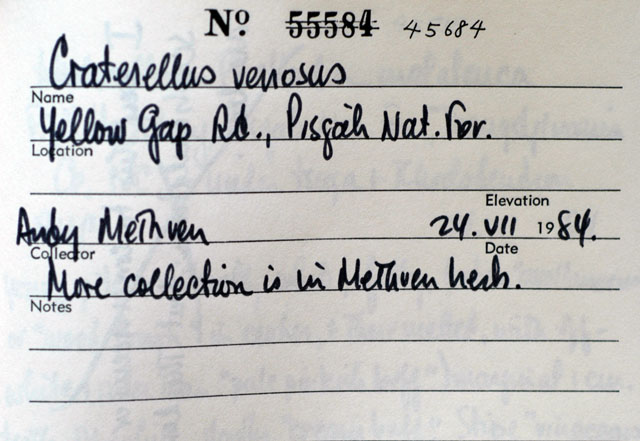 Nº 55584 45684
Craterellus venosus
Name
Yellow Gap Rd., Pisgah Nat. For.
Location
Elevation
Andy Methven 24. VII 1984.
Collector Date
More collection is in Methven herb.
Notes